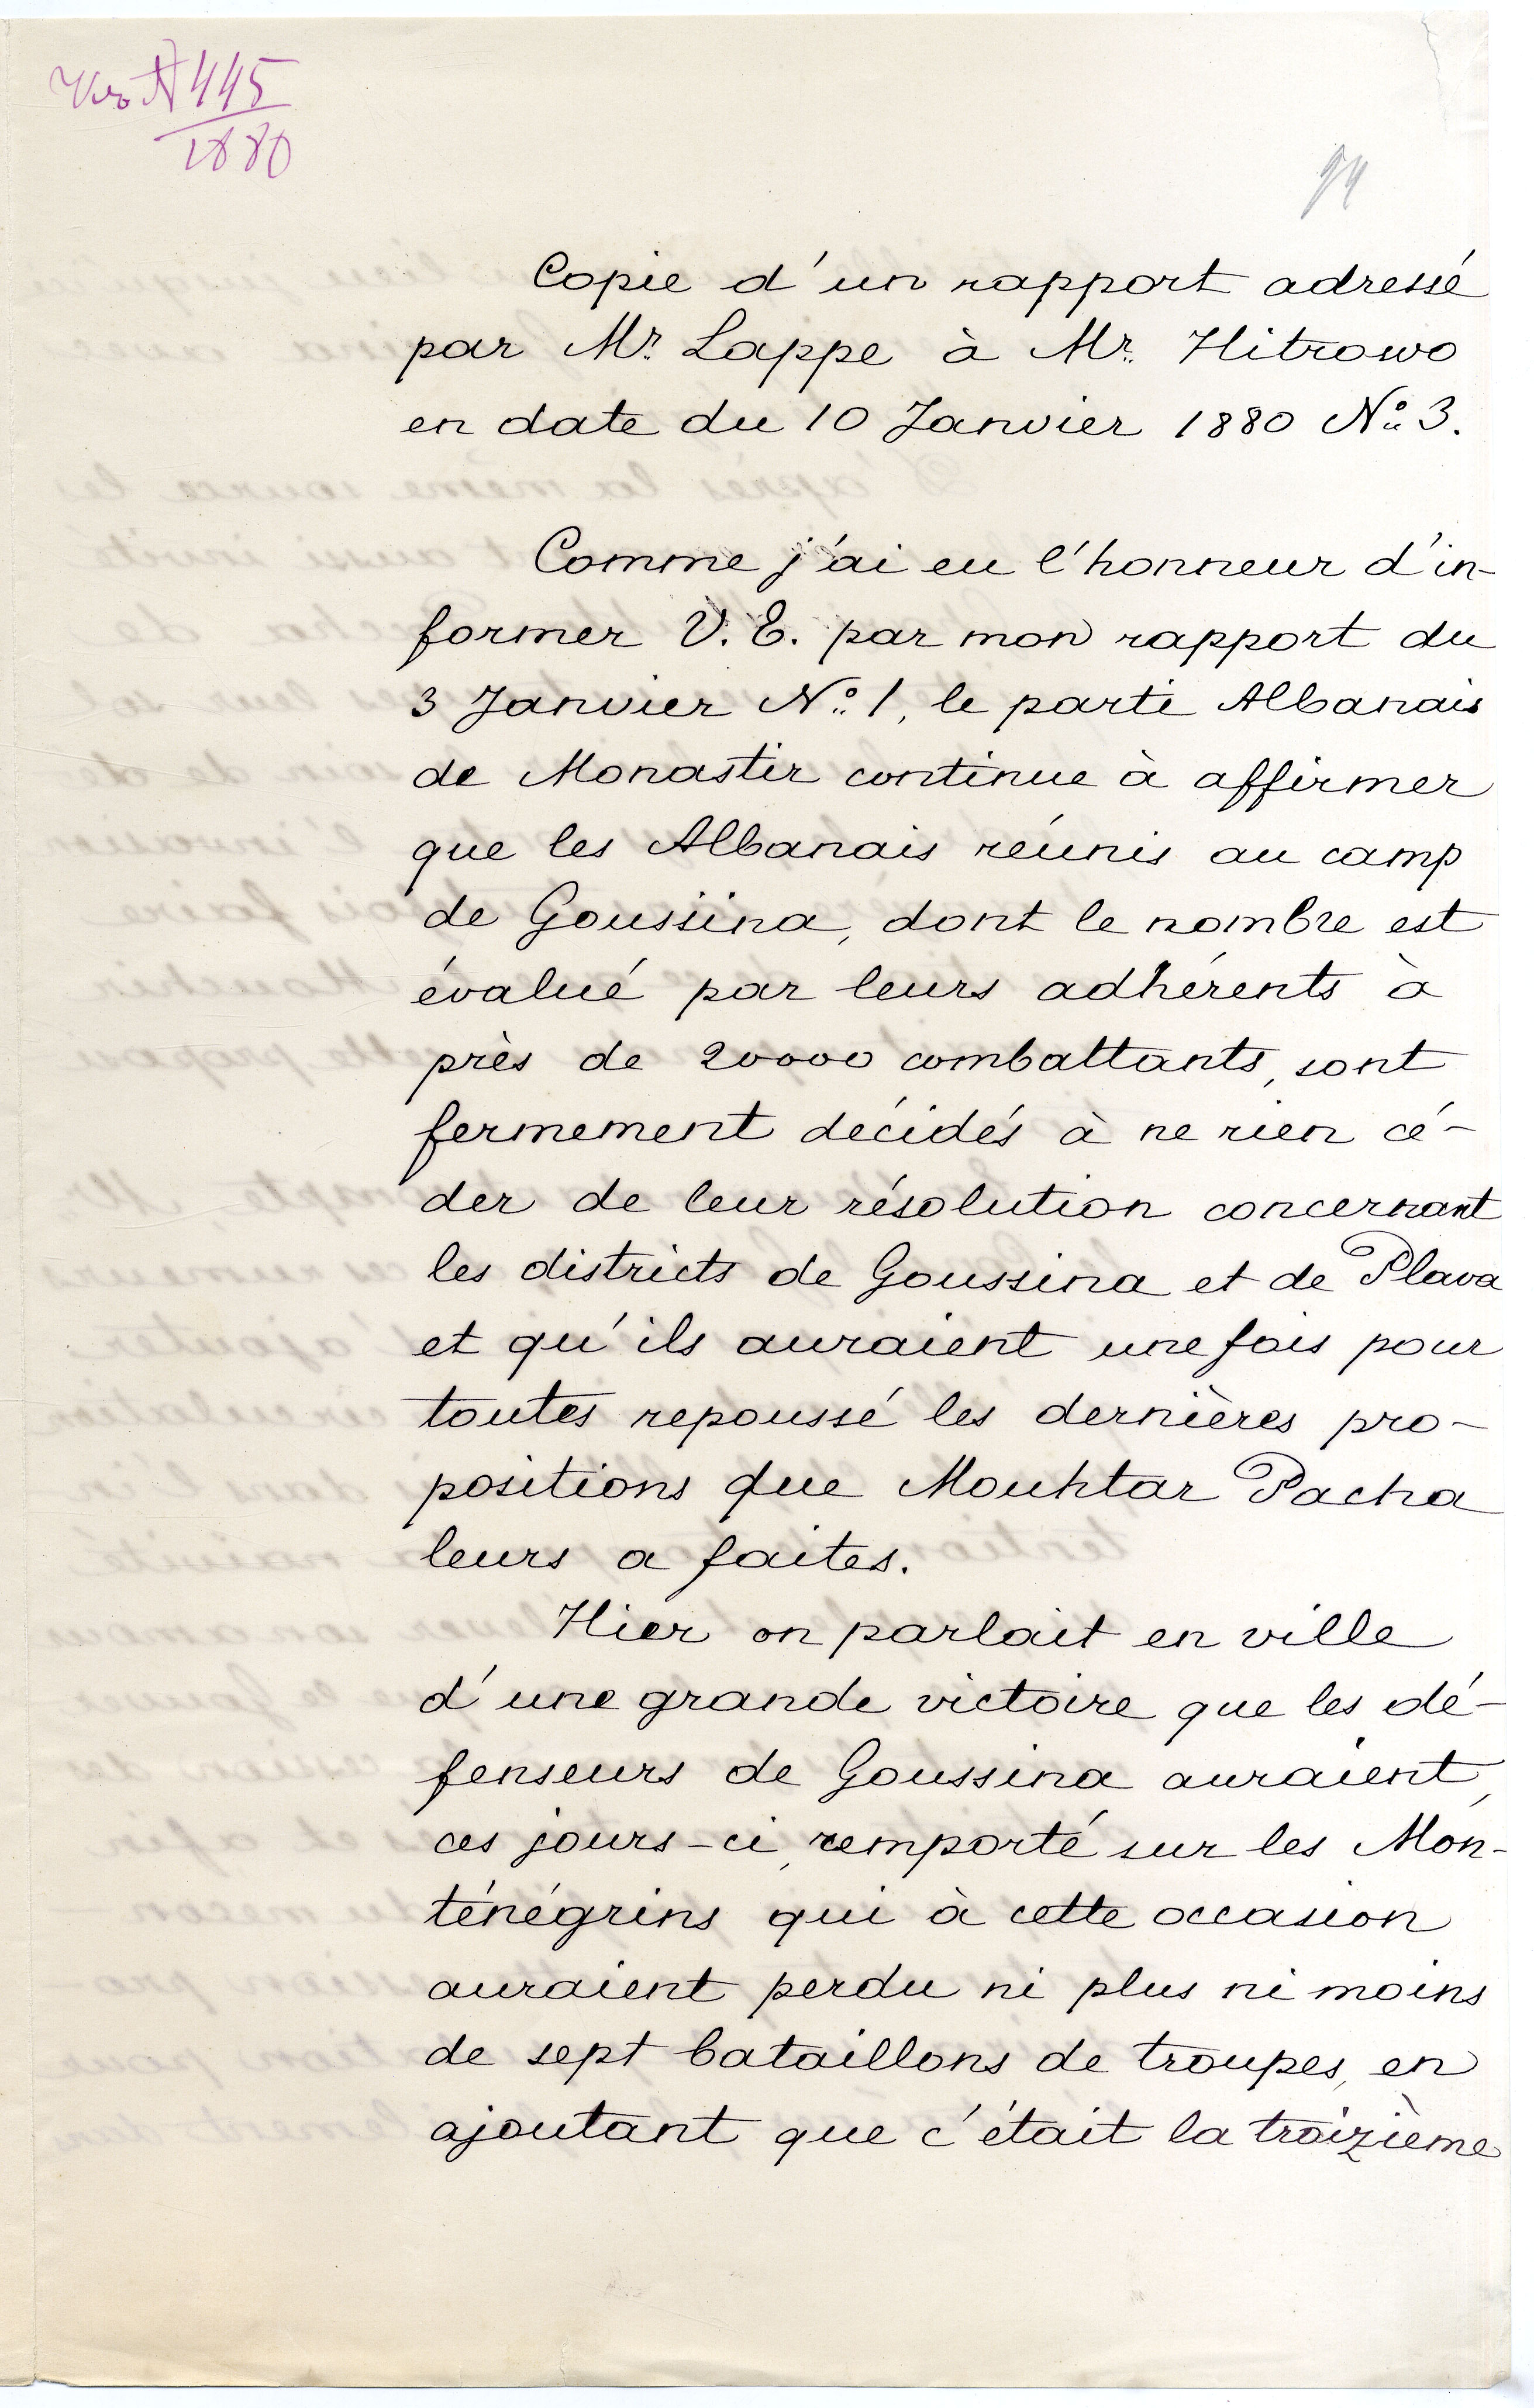 A 445
1880
Copie d'un rapport adressé
par Mr. Lappe à Mr. Hitrowo
en date du 10 Janvier 1880 No. 3.
Comme j'ai eu l'honneur d'in-
former V. E. par mon rapport du
3 Janvier No. 1, le parti Albanais
de Monastir continue à affirmer
que les Albanais réunis au camp
de Goussina, dont le nombre est
évalué par leurs adhérents à
près de 20000 combattants, sont
fermement décidés à ne rien cé-
der de leur résolution concernant
les districts de Goussina et de Plava
et qu'ils auraient une fois pour
toutes repoussé les dernières pro-
positions que Mouhtar Pacha
leurs a faites.
Hier on parlait en ville
d'une grande victoire que les dé-
fenseurs de Goussina auraient,
ces jours-ci, remporté sur les Mon-
ténégrins qui à cette occasion
auraient perdu ni plus ni moins
de sept bataillons de troupes, en
ajoutant que c'était la troizième